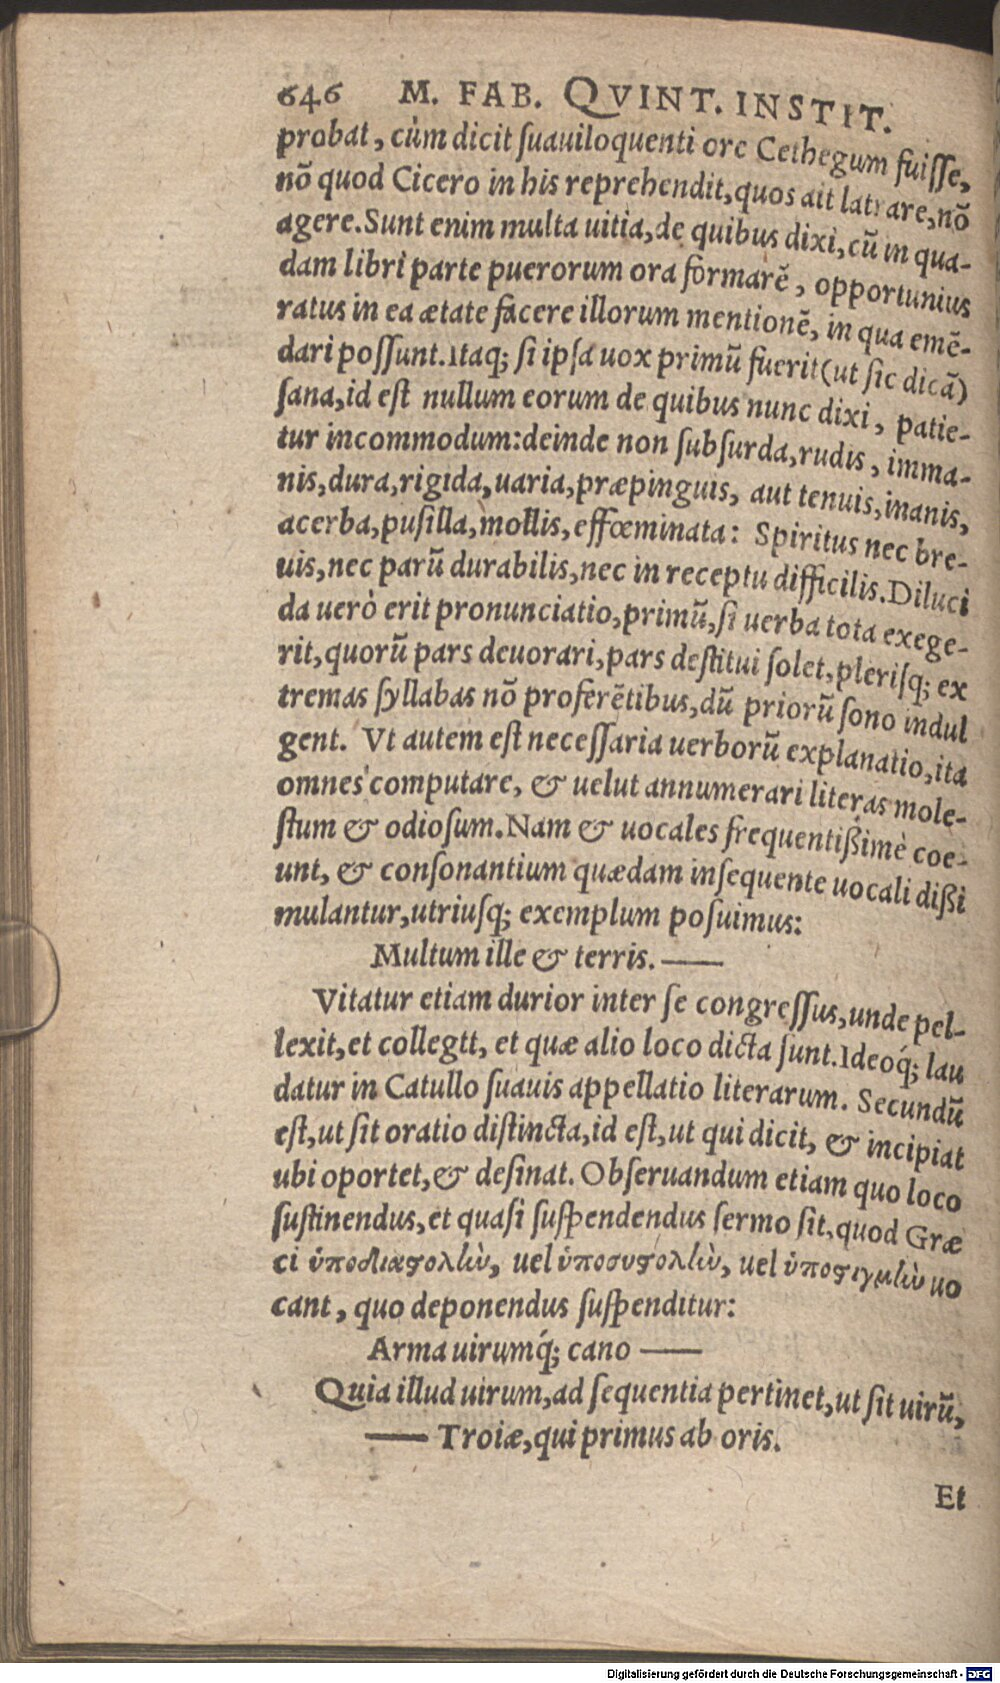 646 M. FAB. QVINT. INSTIT.
probat, cùm dicit ſuauiloquenti ore Cethegum fuiſſe,
nō quod Cicero in his reprehendit, quos ait latrare, nō
agere. Sunt enim multa uitia, de quibus dixi, cū in qua-
dam libri parte puerorum ora formarē, opportunius
ratus in ea ætate facere illorum mentionē, in qua emē-
dari poſſunt. Itaq; ſi ipſa uox primū fuerit (ut ſic dicā)
ſana, id eſt nullum eorum de quibus nunc dixi, patie-
tur incommodum: deinde non ſubſurda, rudis, imma-
nis, dura, rigida, uaria, præpinguis, aut tenuis, inanis,
acerba, puſilla, mollis, effœminata: Spiritus nec bre-
uis, nec parū durabilis, nec in receptu difficilis. Diluci
da uerò erit pronunciatio, primū, ſi uerba tota exege-
rit, quorū pars deuorari, pars deſtitui ſolet, pleriſq; ex
tremas ſyllabas nō proferētibus, dū priorū ſono indul
gent. Vt autem eſt neceſſaria uerborū explanatio, ita
omnes computare, & uelut annumerari literas mole-
ſtum & odioſum. Nam & uocales frequentißimè coe-
unt, & conſonantium quædam inſequente uocali dißi
mulantur, utriuſq; exemplum poſuimus:
Multum ille & terris. ——
Vitatur etiam durior inter ſe congreſſus, unde pel-
lexit, et collegtt, et quæ alio loco dicta ſunt. Ideoq́; lau
datur in Catullo ſuauis appellatio literarum. Secundū
eſt, ut ſit oratio diſtincta, id eſt, ut qui dicit, & incipiat
ubi oportet, & deſinat. Obſeruandum etiam quo loco
ſuſtinendus, et quaſi ſuſpendendus ſermo ſit, quod Græ
ci ὑποδιαστολὴν, uel ὑποσυστολὴν, uel ὑποστιγμὴν uo
cant, quo deponendus ſuſpenditur:
Arma uirumq́; cano ——
Quia illud uirum, ad ſequentia pertinet, ut ſit uirū,
—— Troiæ, qui primus ab oris.
Et
Digitalisierung gefördert durch die Deutsche Forschungsgemeinschaft - DFG